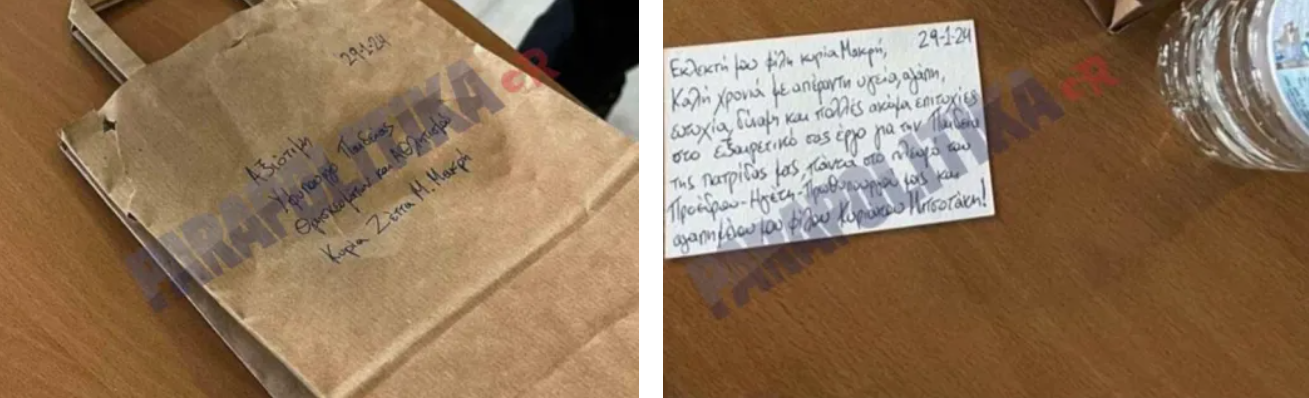 29-1-24
Αξιότιμη
Υφυπουργό Παιδείας
Θρησκευμάτων και Αθλητισμού
Κυρία Ζέττα Μ. Μακρή
PARAPOLITIKA.GR
29-1-24
Εκλεκτή μου φίλη κυρία Μακρή,
Καλή χρονιά με απέραντη υγεία, αγάπη,
ευτυχία, δύναμη και πολλές ακόμα επιτυχίες
στο εξαιρετικό σας έργο για την Παιδεία
της πατρίδας μας, πάντα στο πλευρό του
Προέδρου-Ηγέτη-Πρωθυπουργού μας και
αγαπημένου μου φίλου Κυριάκου Μητσοτάκη!
PARAPOLITIKA.GR